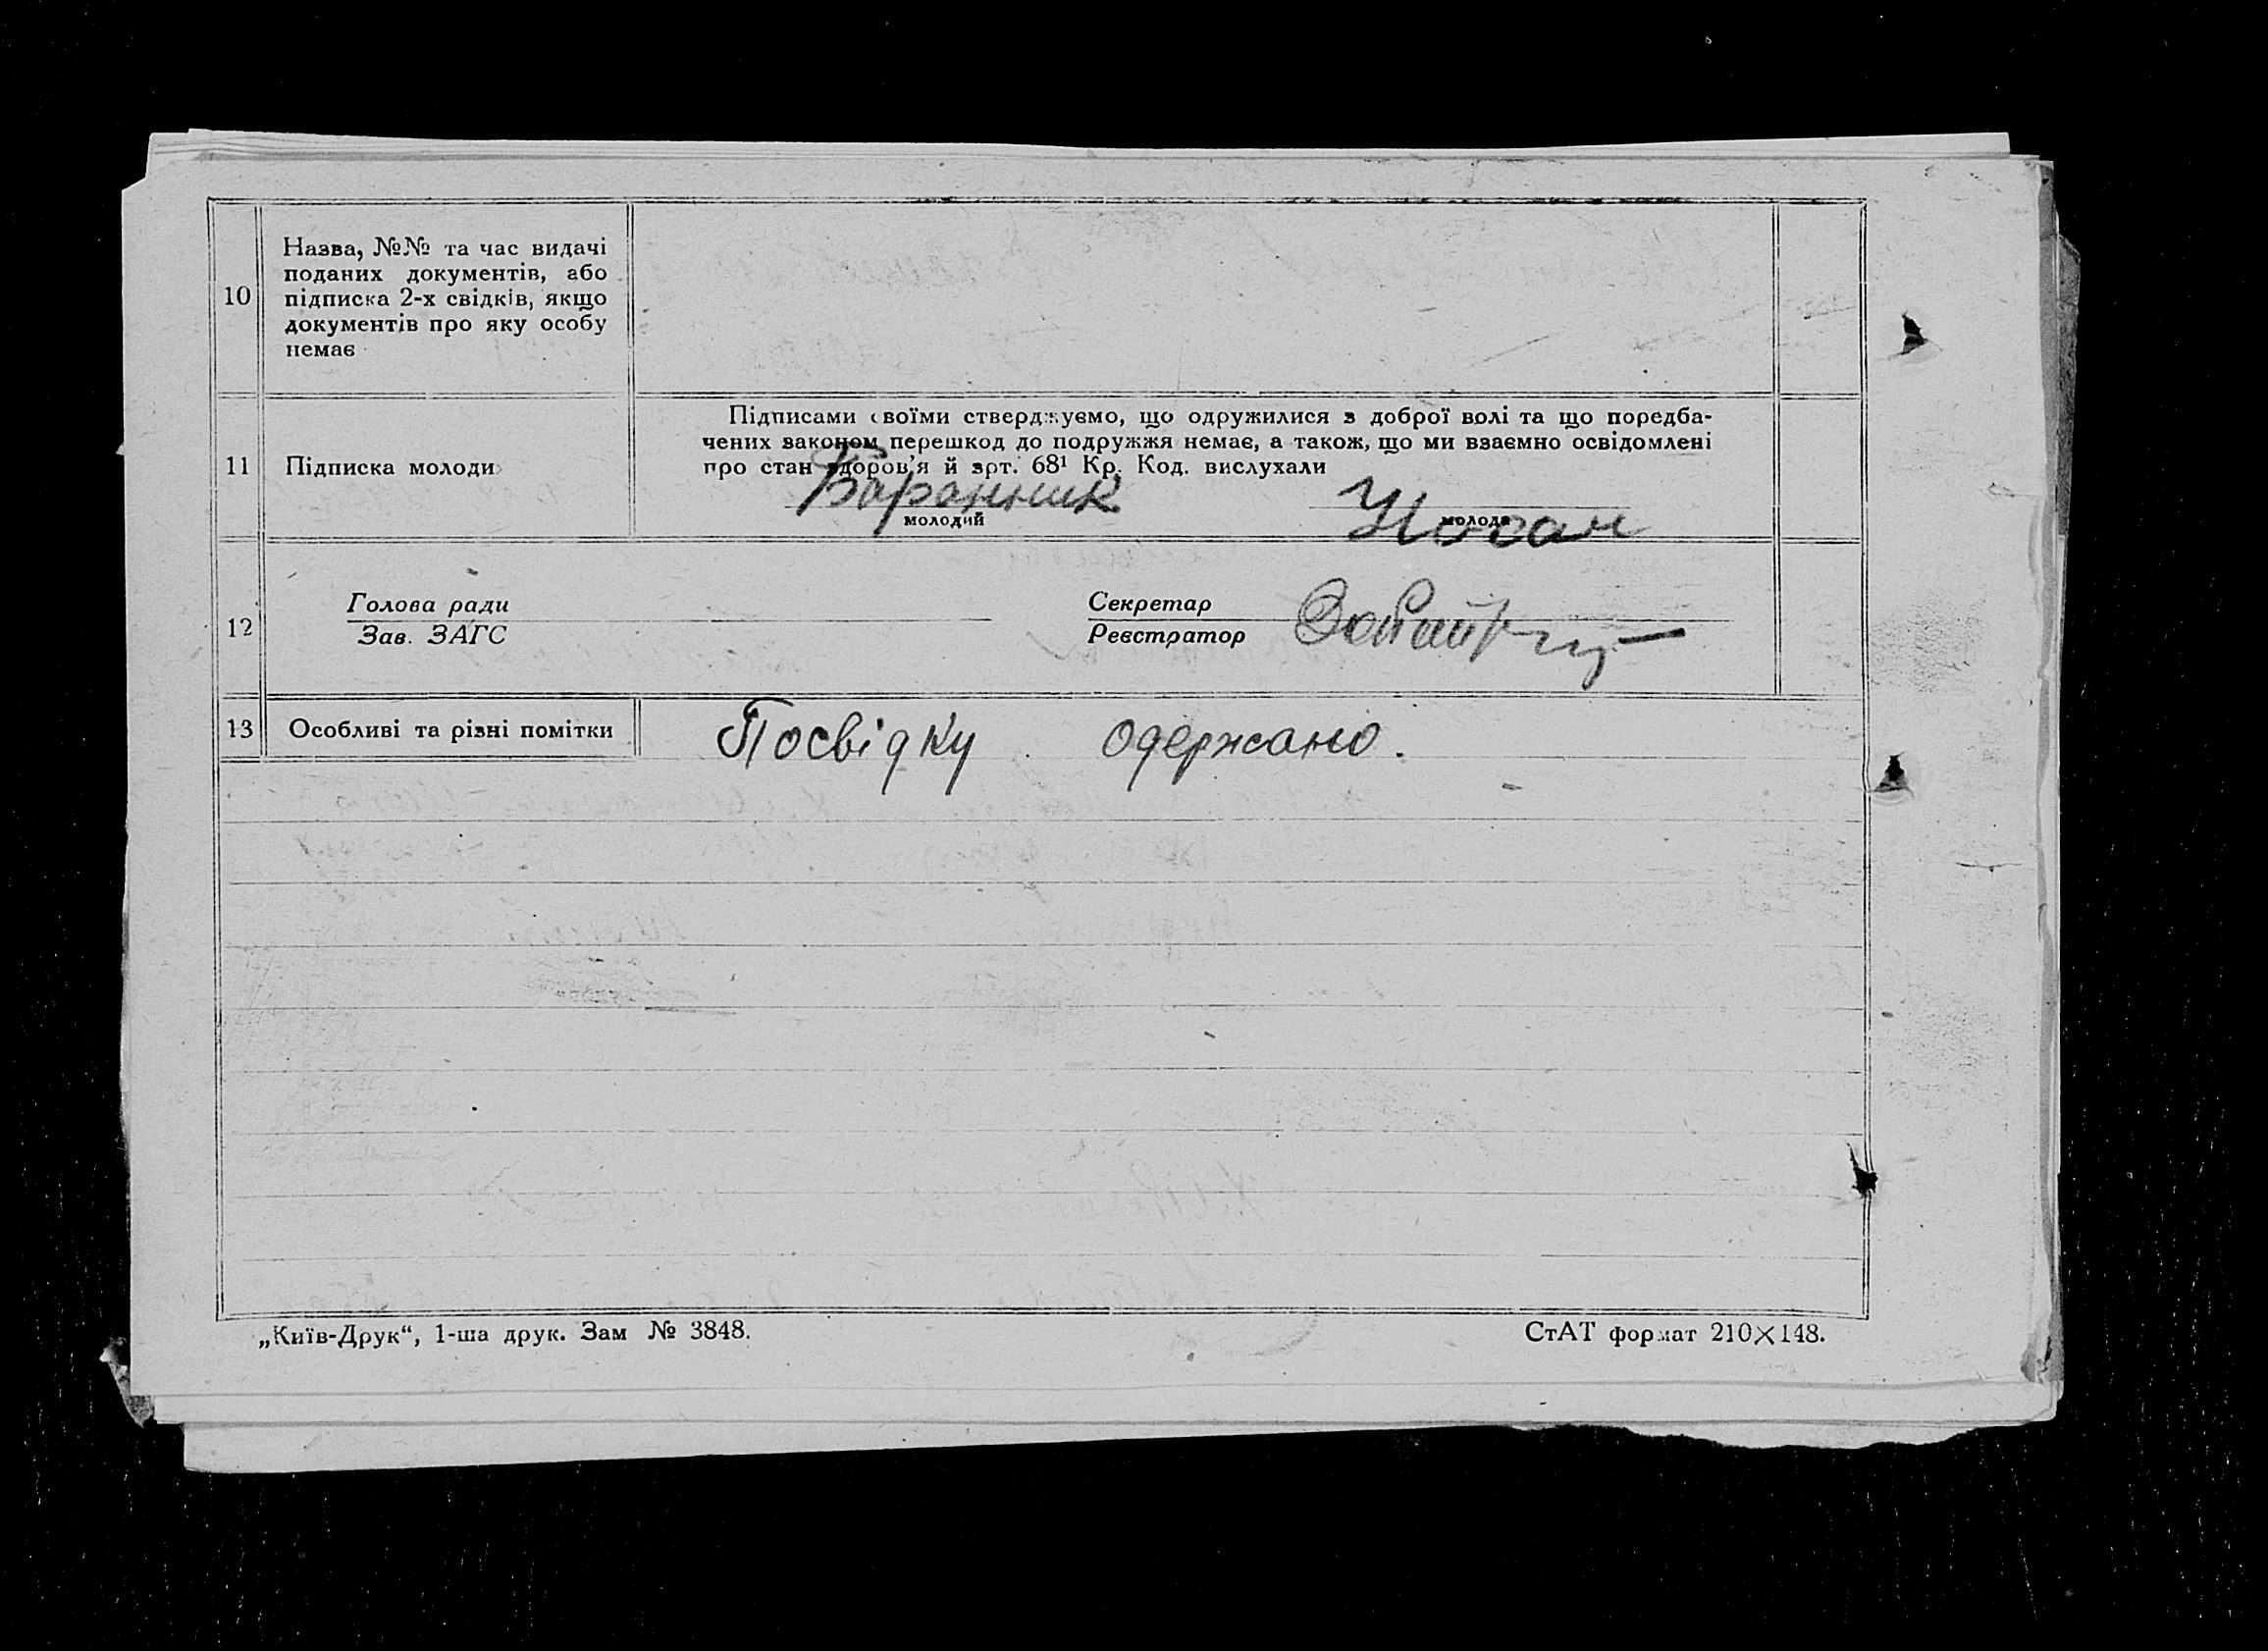 10
Назва, №№ та час видачі
поданих документів, або
підписка 2-х свідків, якщо
документів про яку особу
немає
11
Підписка молоди
Підписами своїми стверджуємо, що одружилися з доброї волі та що поредба-
чених законом перешкод до подружжя немає, а також, що ми взаємно освідомлені
про стан здоров'я й арт. 68¹ Кр. Код. вислухали
Баранник
молодий
молода
12
Голова ради
Зав. ЗАГС
Секретар
Реєстратор
13
Особливі та різні помітки
Посвідку одержано.
„Київ-Друк“, 1-ша друк. Зам № 3848.
СтАТ формат 210×148.